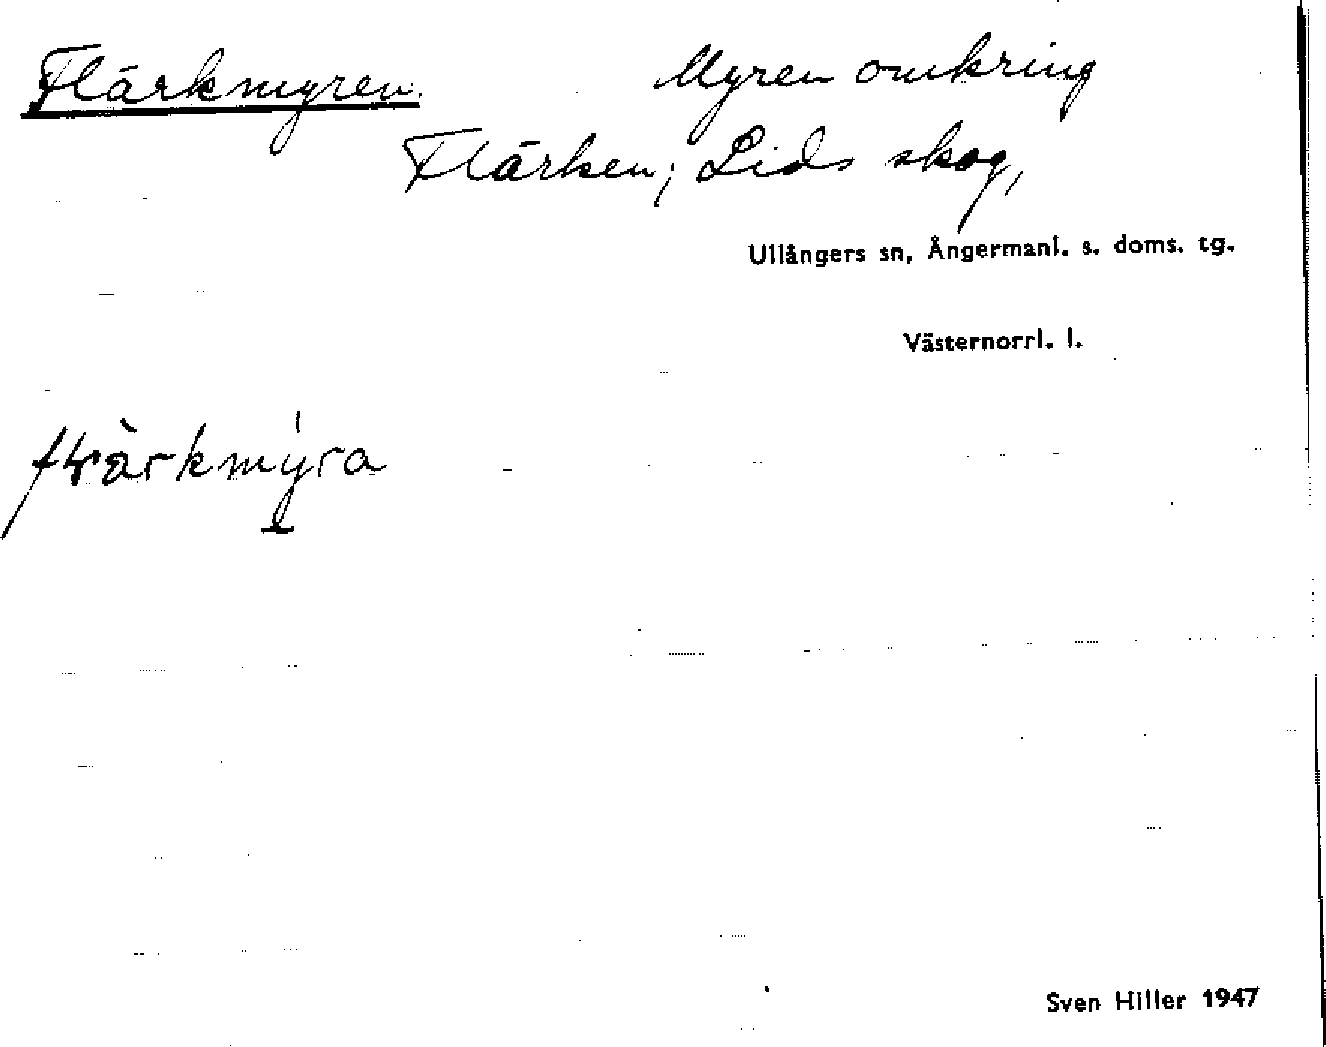 Flärkmyren. Myren omkring
Flärken; Lids skog,
Ullångers sn, Ångermanl. s. doms. tg.
Västernorrl. l.
Sven Hiller 1947